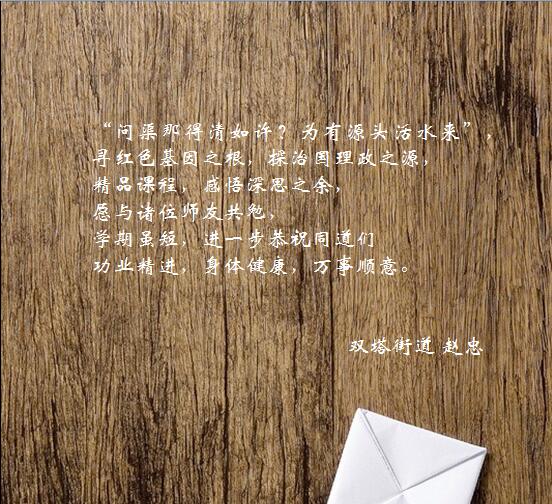 “问渠那得清如许？为有源头活水来”，
寻红色基因之根，探治国理政之源，
精品课程，感悟深思之余，
愿与诸位师友共勉，
学期虽短，进一步恭祝同道们
功业精进，身体健康，万事顺意。
双塔街道 赵忠